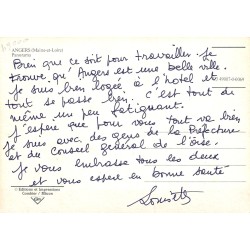 ANGERS (Maine-et-Loire)
Panorama
Bien que ce soit pour travailler. Je
trouve qu'Angers est une belle ville.
Je suis bien logée à l'hotel et
tout se passe bien. c'est tout de
même un peu fatiguant.
J'espère que pour vous tout va bien
Je suis avec des gens de la Préfecture
et du Conseil général de l'oise.
Je vous embrasse tous les deux
et vous espère en bonne santé
© Editions et Impressions
Combier / Mâcon